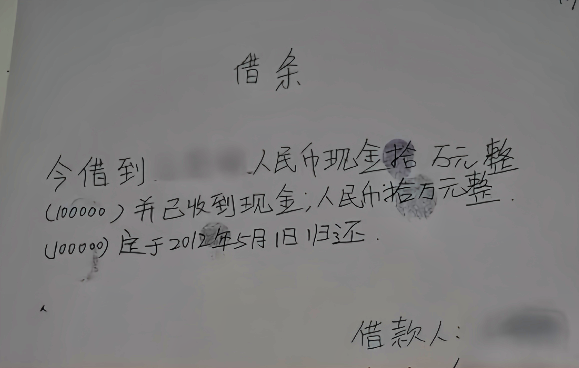 借条
今借到 人民币现金拾万元整
(100000)并已收到现金;人民币拾万元整.
(100000)定于2012年5月1日归还.
借款人: